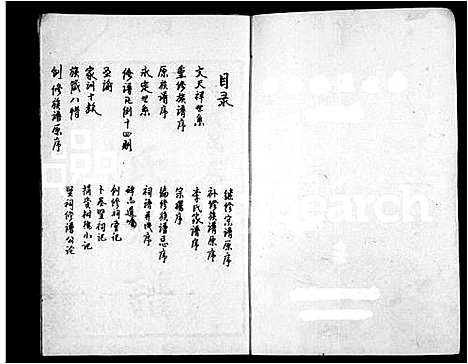 目录
文天祥世系
重修族谱序
原族谱序
永定世系
修谱凡例十四则
圣谕
家训十款
族箴八惜
创修族谱原序
继修宗谱原序
补修族谱原序
李氏家谱序
宗谱序
编修族谱总序
创修祠堂记
卜基坚祠记
坚祠修谱公论